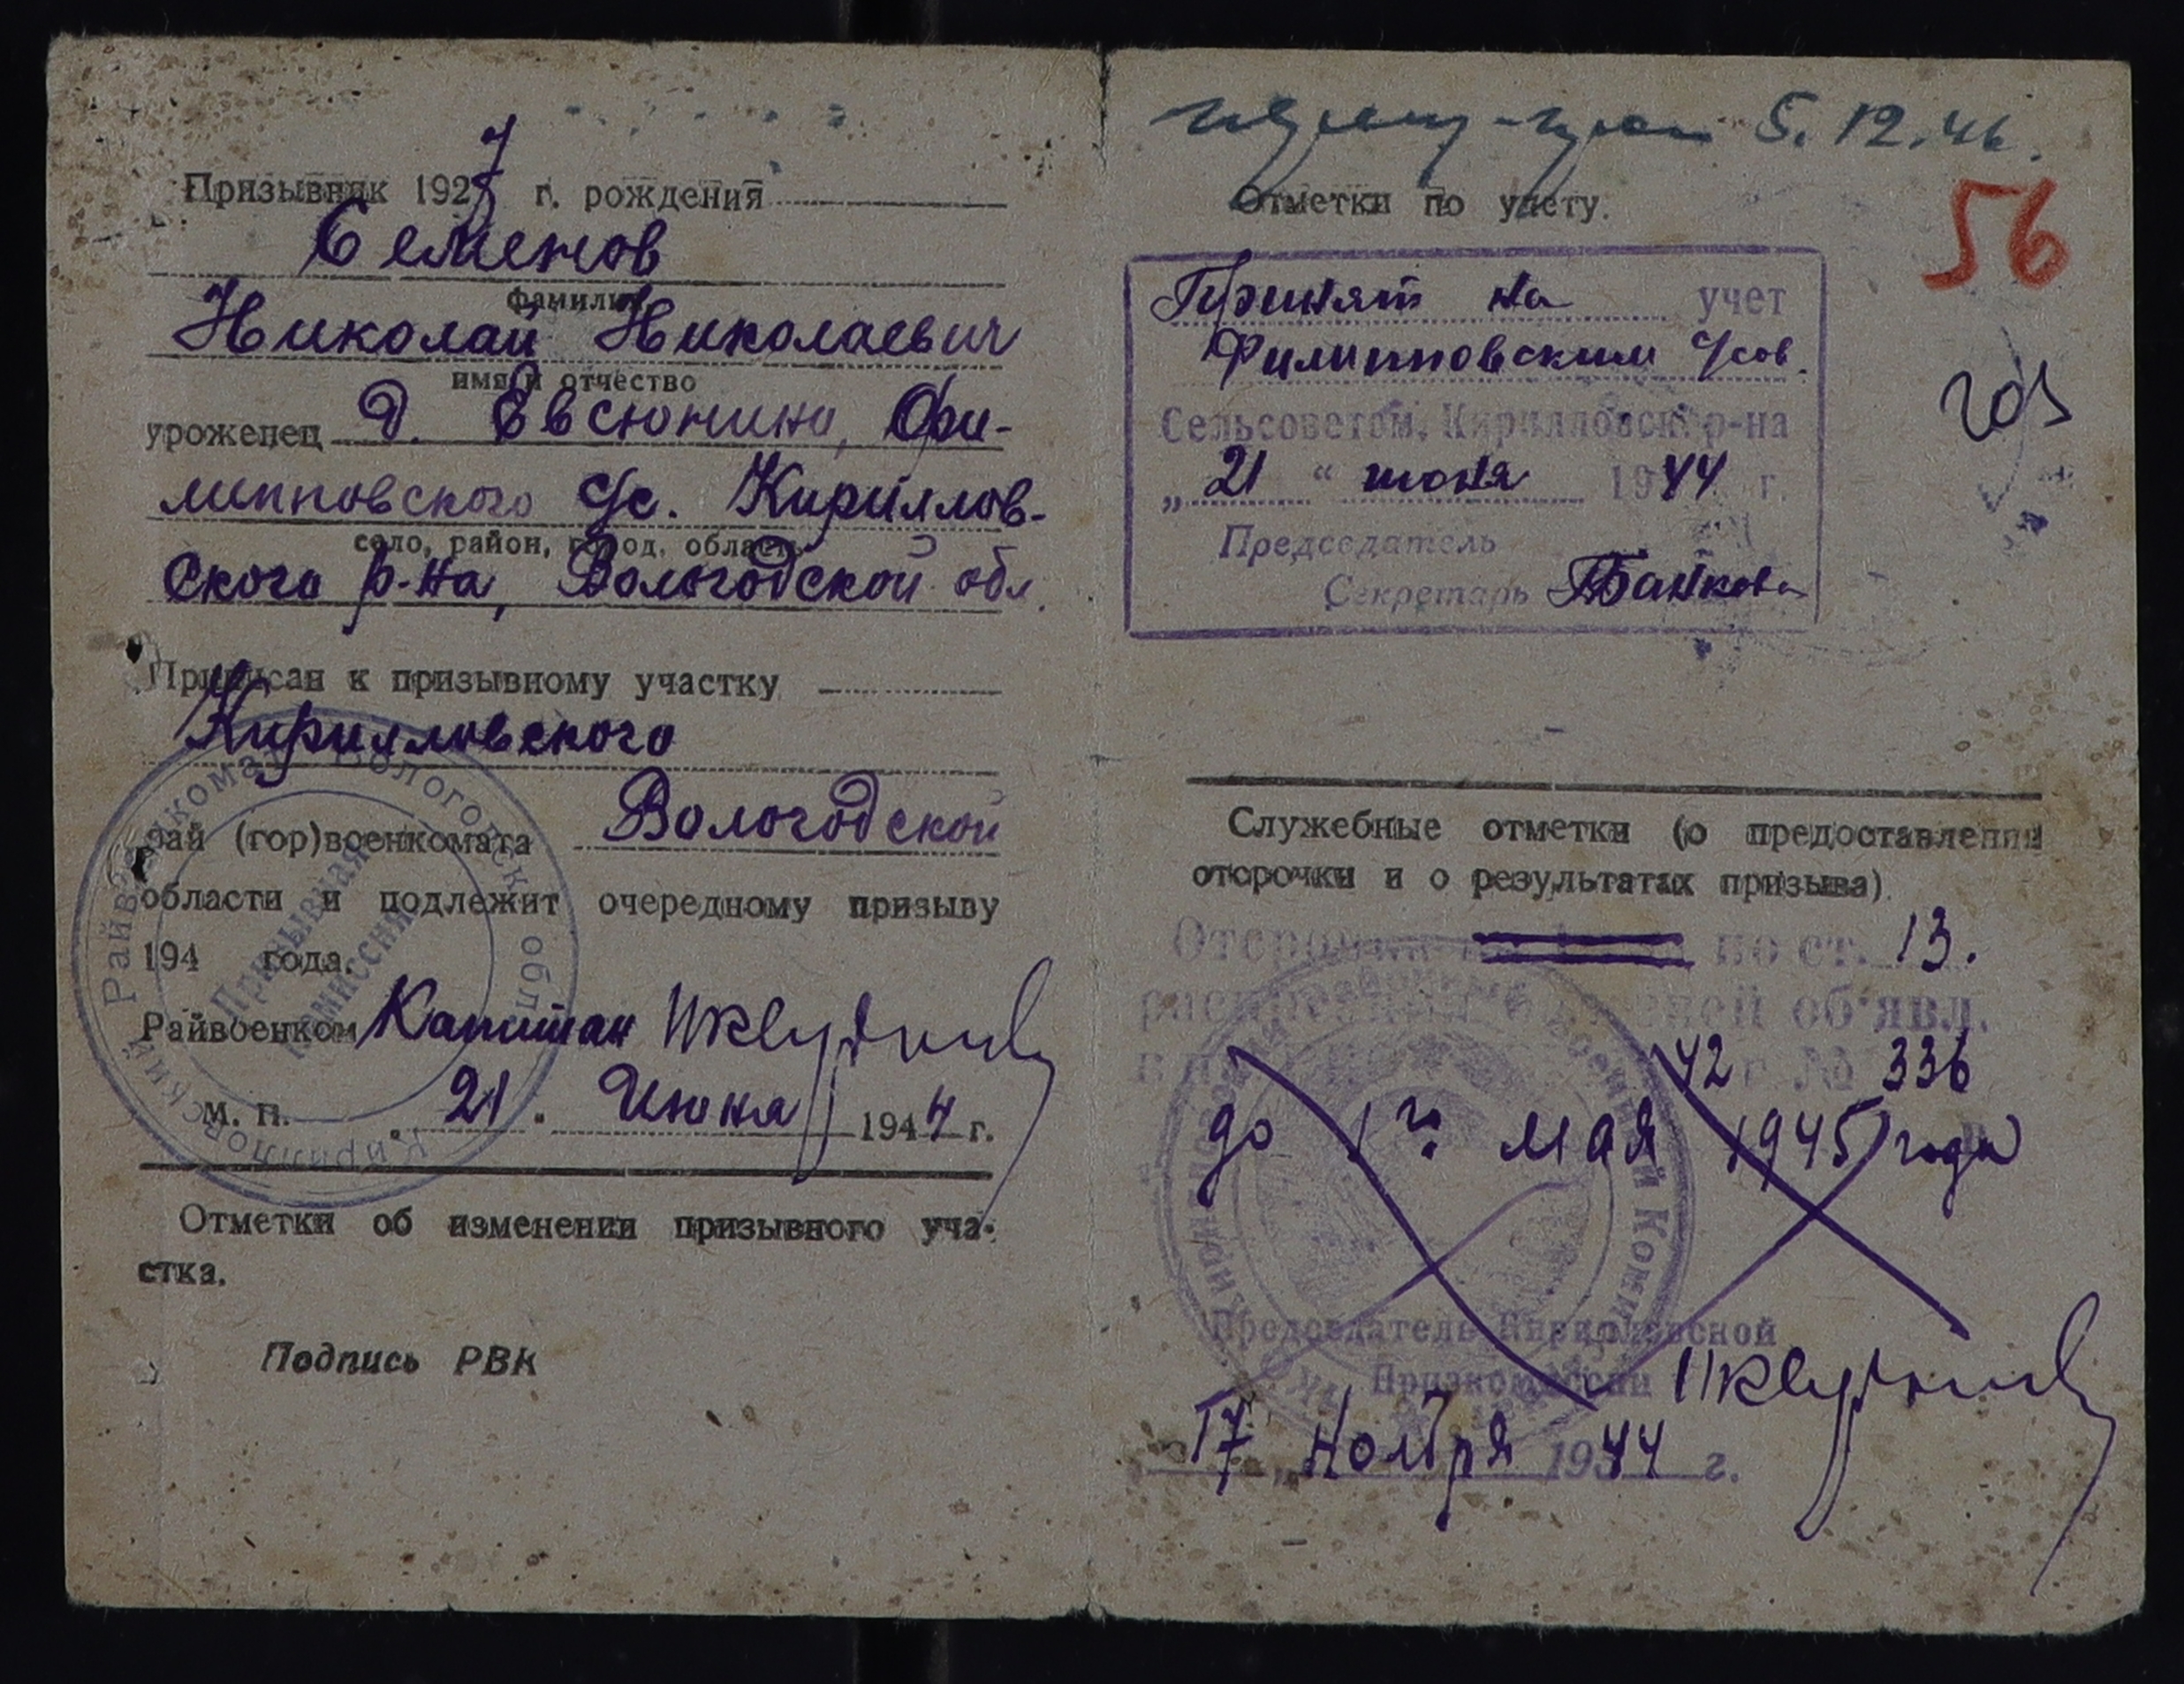 Призывник 1927 г. рождения
Семенов
фамилия
Николай Николаевич
имя и отчество
уроженец д. Евсюнино, Фи-
липповского с/с. Кириллов-
село, район, город, область
ского р-на, Вологодской обл.
Приписан к призывному участку
Кирилловского
рай (гор)военкомата Вологодской
области и подлежит очередному призыву
194 года.
Райвоенком Капитан
М. П. 21. Июня 1944 г.
Призывная комиссия
Отметки об изменении призывного уча-
стка.
Подпись РВК
5.12.46.
Отметки по учету.
56
Принят на учет
Филипповским с/сов.
Сельсоветом, Кирилловск. р-на
„21“ июня 1944 г.
Председатель
Секретарь
Служебные отметки (о предоставлении
отсрочки и о результатах призыва).
Отсрочка по ст. 13.
об'явл.
42 г. № 336
до 1го мая 1945 года
Председатель Кирилловской
Призкомиссии
17 ноября 1944 г.